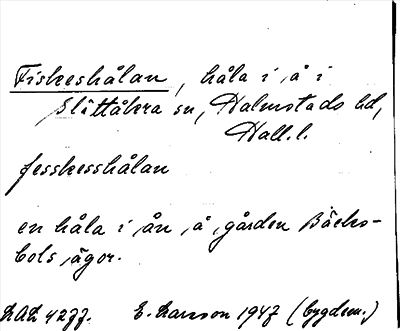 Fiskeshålan, håla i å i
Slättåkra sn, Halmstads hd,
Hall.l.
fesskesshålan
en håla i ån å gården Bäcks-
bols ägor.
LAL 4277. E. Larsson 1947 (bygdem.)